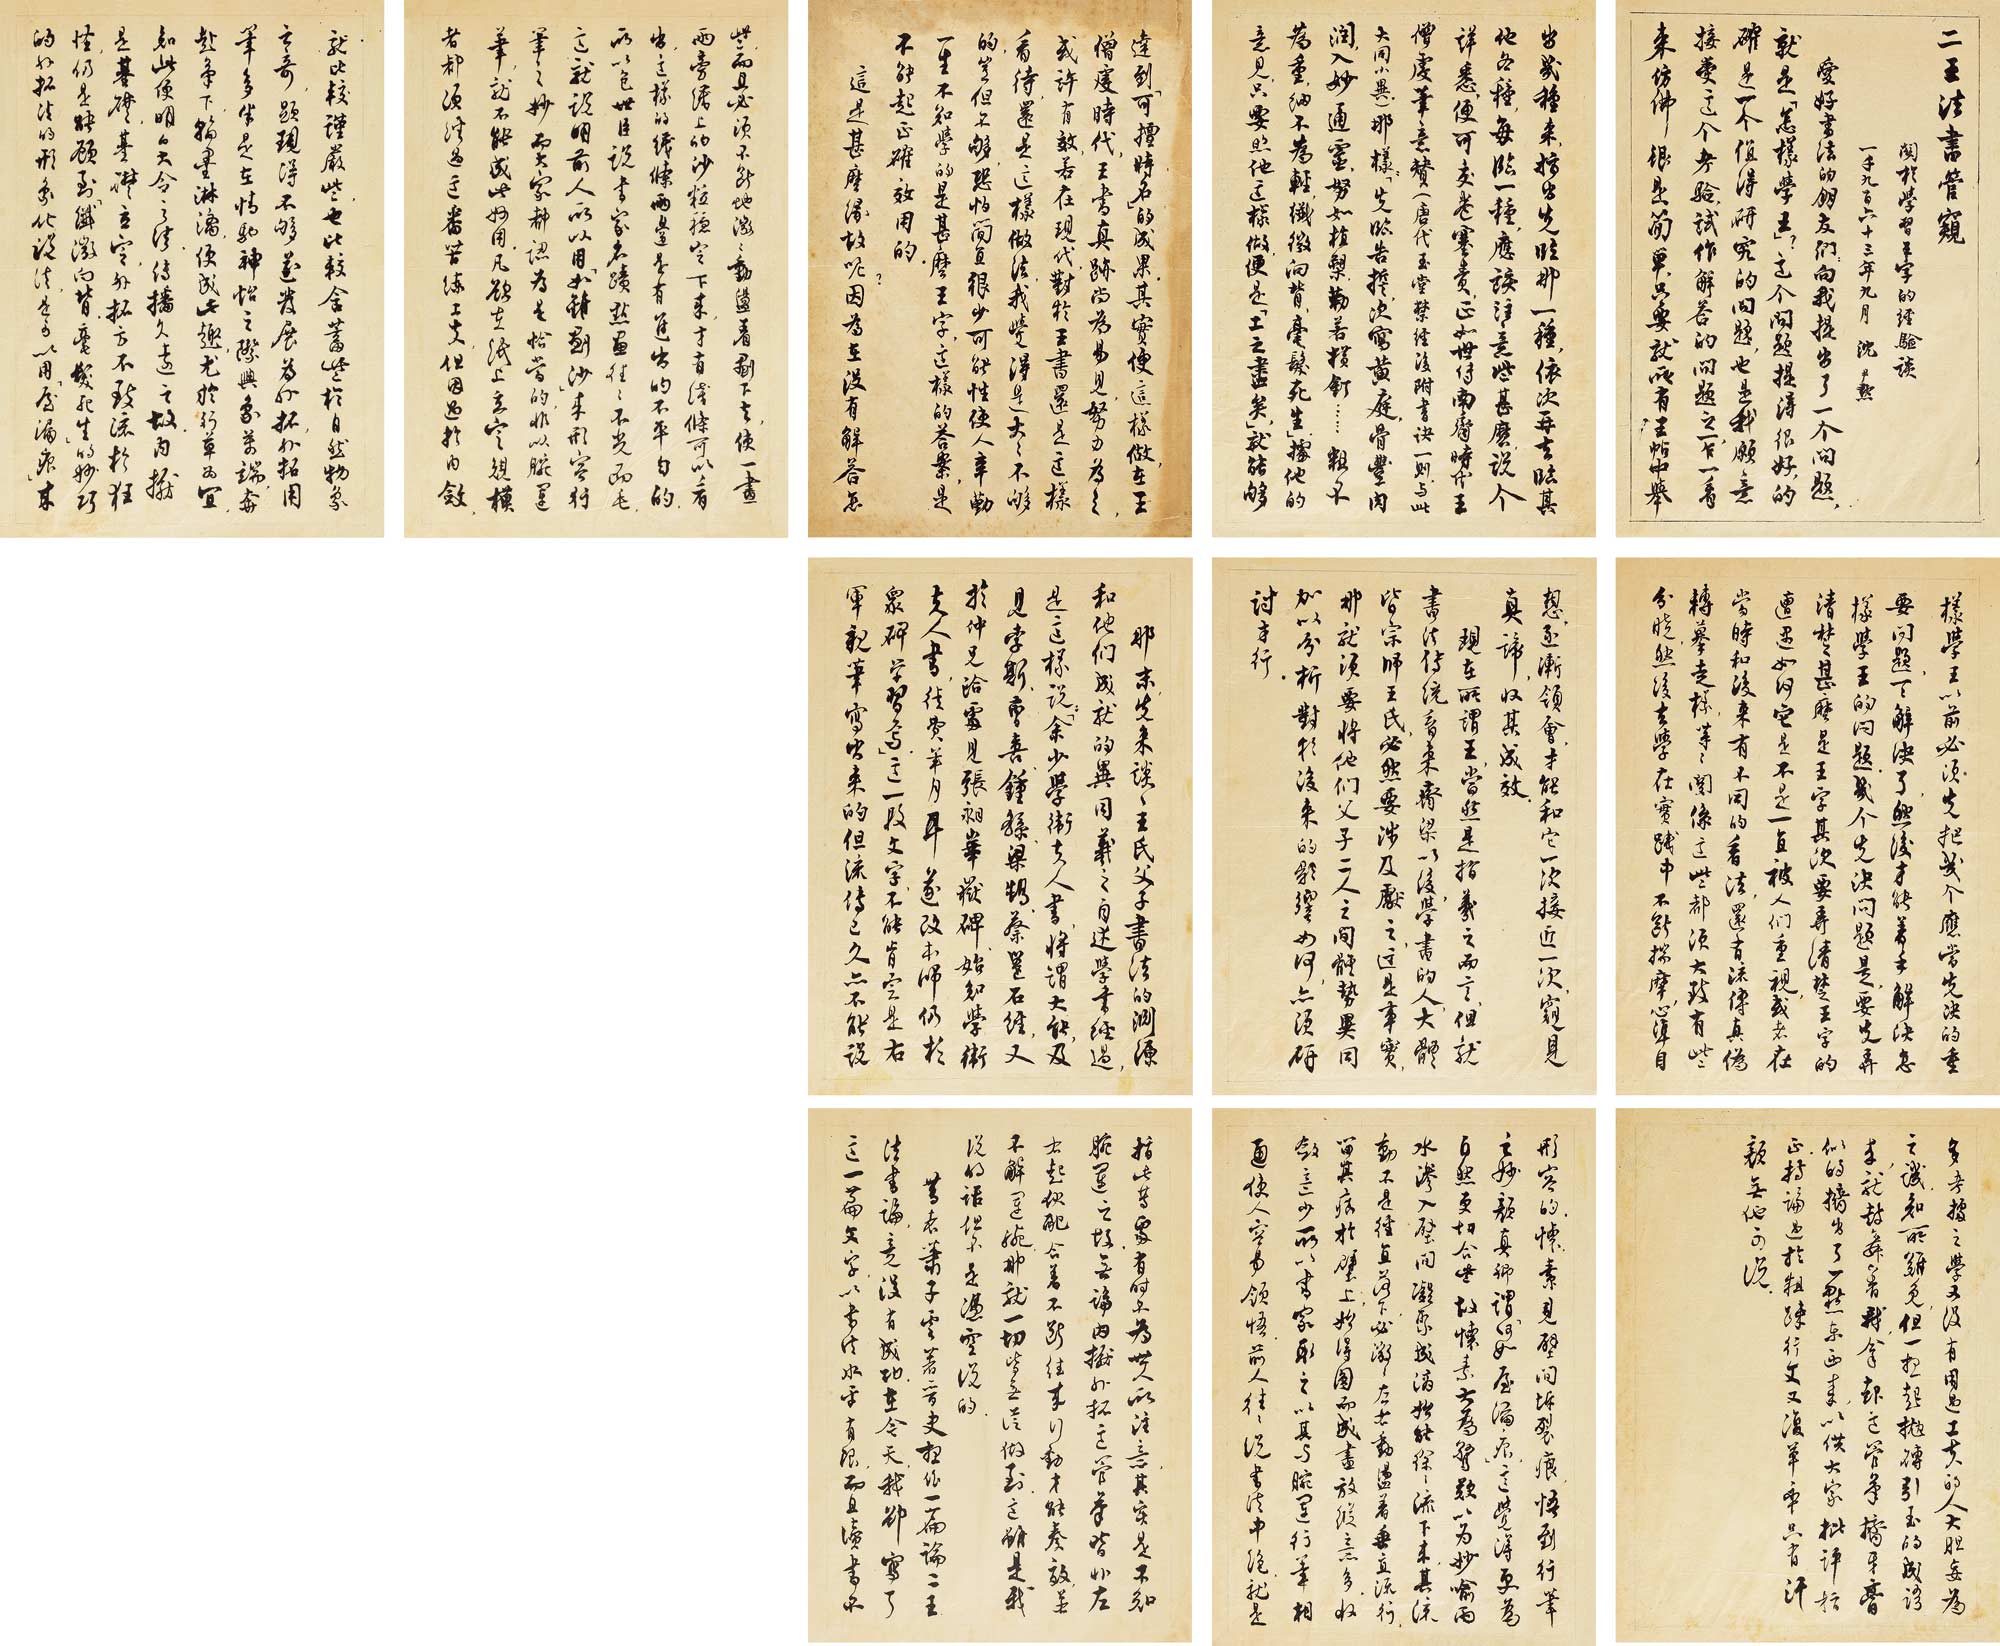 二王法書管窺
關於學習王字的經驗談
一千九百六十三年九月 沈尹默
愛好書法的朋友們向我提出了一个問題，
就是「怎樣學王」？这个問題提得很好，的
確是一个值得研究的問題，也是我願意
接受这个考驗，試作解答的問題之一。乍一看
来，仿佛很是簡單，只要就所有王帖中舉
出幾種来，指出先臨那一種，依次再去臨其
他各種，每臨一種，應該注意些甚麼，說个
詳悉，便可交卷塞責，正如世傳南齊時代王
僧虔筆意贊（唐代玉堂禁經後附書訣一則，与此
大同小異）那樣：「先臨告誓，次寫黄庭，骨豐肉
潤，入妙通靈，努如植槊，勒若横釘……粗不
為重，細不為輕，纖微向背，毫髮死生」，據他的
意見，只要照他这樣做，便是「工之盡矣」，就能夠
達到「可擅時名」的成果。其實便這樣做，在王
僧虔時代，王書真跡尚為易見，努力為之，
或許有效，若在現代，對於王書還是这樣
看待，還是这樣做法，我覺得是大大不够
的，豈但不够，恐怕簡直很少可能性使人辛勤
一生，不知學的是甚麼王字，这樣的答案，是
不能起正確效用的。
這是甚麼緣故呢？因為在没有解答怎
樣學王以前，必須先把幾个應當先決的重
要問題一一解決了，然後才能着手解決怎
樣學王的問題。幾个先決問題是：要先弄
清楚甚麼是王字，其次要弄清楚王字的
遭遇如何，它是不是一直被人們重視，或者在
當時和後来有不同的看法，還有流傳真偽、
轉摹走樣等等關係，这些都須大致有些
分曉，然後去學，在實踐中不斷揣摩，心準目
想，逐漸領會，才能和它一次接近一次，窺見
真諦，收其成效。
現在所謂王，當然是指羲之而言，但就
書法傳統看来，齊梁以後，學書的人，大體
皆宗師王氏，必然要涉及獻之，这是事實，
那就須要將他們父子二人之間體勢異同
加以分析，對於後来的影響如何，亦須研
討才行。
那末，先来談談王氏父子書法的淵源
和他們成就的異同。羲之自述學書經過，
是这樣說：「余少學衛夫人書，將謂大能，及
見李斯、曹喜、鍾繇、梁鵠、蔡邕石經，又
於仲兄洽處見張昶華嶽碑，始知學衛
夫人書，徒費年月耳，遂改本師，仍於
衆碑学習焉。」这一段文字，不能肯定是右
軍親筆寫出来的，但流傳已久，亦不能說
些，而且必須不斷地澂澂動盪着劃下去，使一畫
兩旁綫上的沙粒穩定下来，才有綫條可以看
出，这樣的綫條兩邊是有進出的，不平勻的，
所以包世臣說書家名蹟，點畫往往不光而毛，
这就說明前人所以用「如錐劃沙」来形容行
筆之妙，而大家都認為是恰當的，非以腕運
筆，就不能成此妙用。凡欲在紙上立定規模
者，都須經過这番苦練工夫，但因過於内斂，
就比較謹嚴些，也比較含蓄些，於自然物象
之奇，顯現得不够，遂發展為外拓。外拓用
筆，多半是在情馳神怡之際，興象萬端，奔
赴筆下，揄毫淋漓，便成此趣，尤於行草為宜，
知此便明白大令之法傳播久遠之故。内擫
是基礎，基礎立定，外拓方不致流於狂
怪，仍是能顧到「纖微向背，毫髮死生」的妙巧
的外拓法的形象化說法，是可以用「屋漏痕」来
形容的。懷素見壁間坼裂痕，悟到行筆
之妙，顏真卿謂「何如屋漏痕」，这覺得更為
自然，更切合些，故懷素大為驚歎以為妙喻。雨
水滲入壁間，凝聚成滴，始能徐徐流下来，其流
動不是徑直落下，必澂澂左右動盪着垂直流行，
留其痕於壁上，始得圓而成畫，放縱意多，收
斂意少，所以書家取之，以其与腕運行筆相
通，使人容易領悟。前人往往說書法中絶，就是
指此等處有時不為世人所注意，其实是不知
腕運之故。無論内擫外拓，这管筆皆非左
右起伏配合着不斷往来行動，才能奏效，若
不解運腕，那就一切皆無從做到。这確是我
說的話，但不是憑空說的。
昔者蕭子雲著晉史，想作一篇論二王
法書論，竟没有成功，在今天我卻寫了
这一篇文字，以書法水平有限，而且讀書不
多，考據之學又没有用過工夫的人，大胆妄為
之譏，知所難免，但一想起抛磚引玉的成語
来，就鼓舞着我拿起这管筆，
似的擠出了一點東西来，以供大家批評指
正，持論過於粗疎，行文又復草率，只有汗
顏，無他可說。